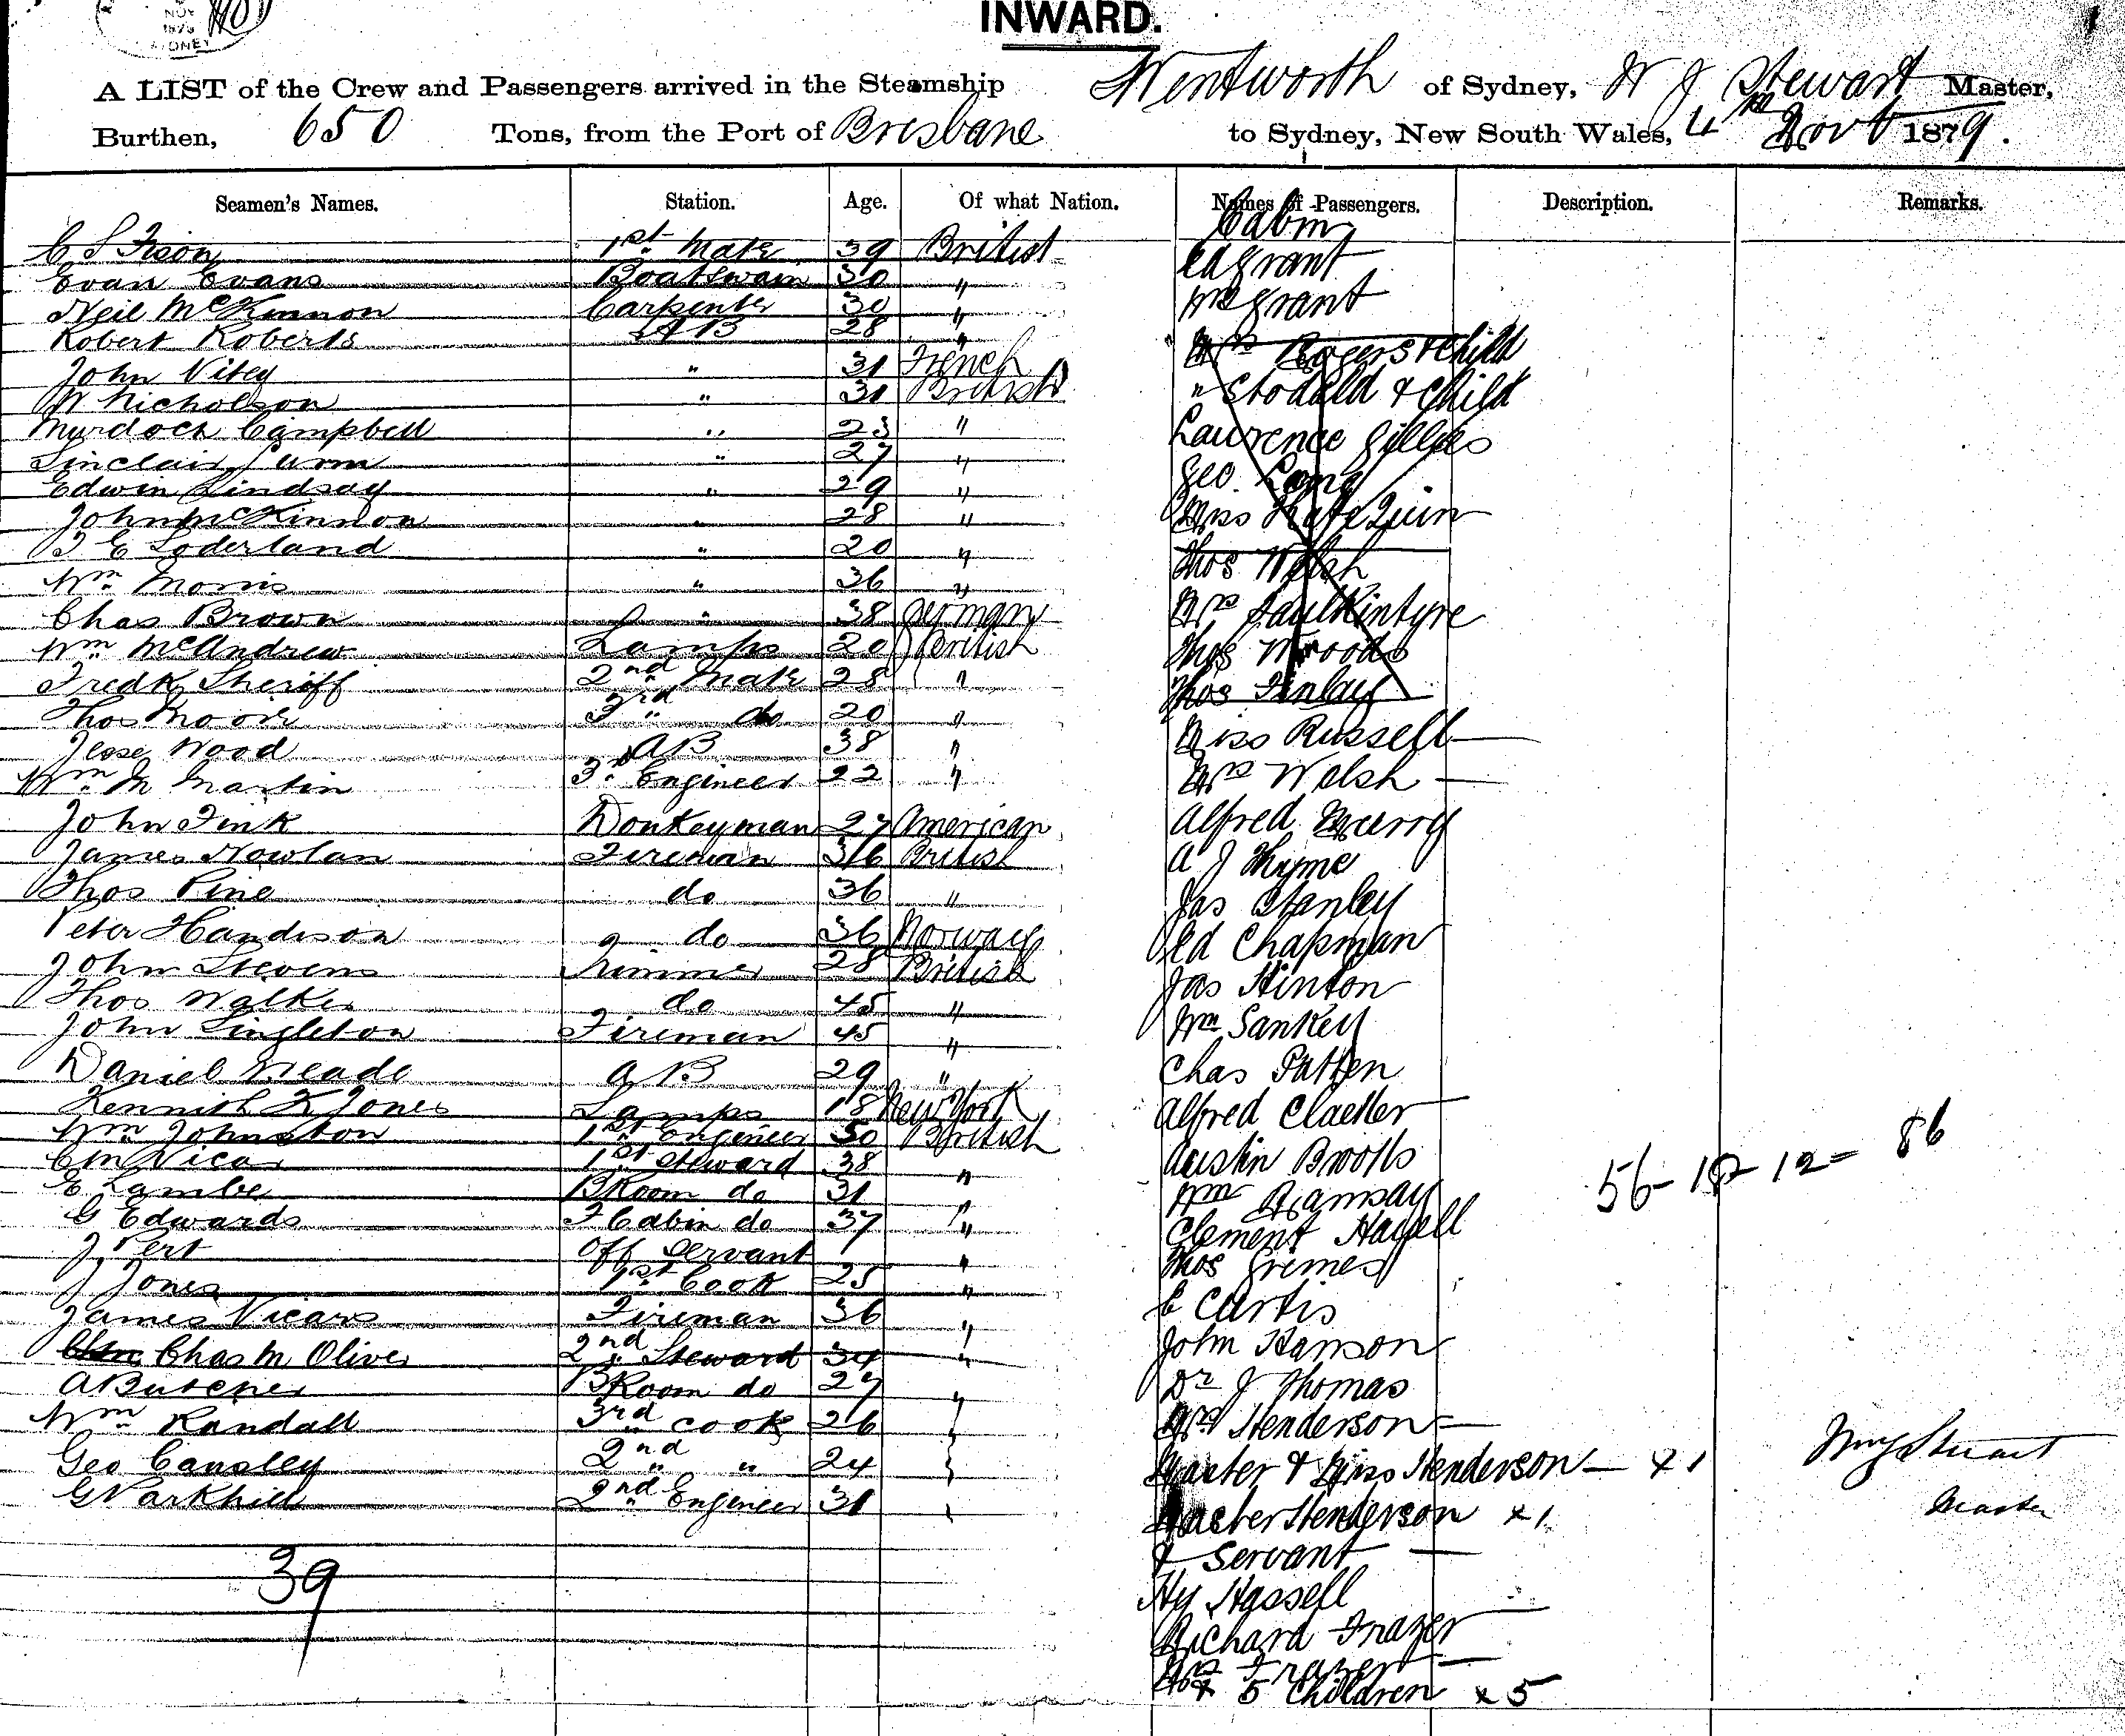 NOV
1879
SYDNEY
INWARD.
A LIST of the Crew and Passengers arrived in the Steamship Wentworth of Sydney, W J Stewart Master,
Burthen, 650 Tons, from the Port of Brisbane to Sydney, New South Wales, 4th Novb 1879.
Seamen's Names. Station. Age. Of what Nation. Names of Passengers. Description. Remarks.
Cabin
C S Fison 1st Mate 39 British
Ed Grant
Evan Evans Boatswain 30 "
Neil McKinnon Carpenter 30 " Mrs Grant
Robert Roberts AB 28 " Mrs Rogers & Child
John Vitey " 31 French
W Nicholson " 31 British " Stodald & Child
Murdoch Campbell " 23 " Lawrence Gillies
Sinclair " 27 " Geo. Lang
Edwin Lindsay " 29 "
John McKinnon " 28 " Miss Kate Quin
J E Soderland " 20 " Thos Welsh
Wm Morris " 36 "
Chas Brown " 38 German Mrs
Wm McAndrew Lamps 20 British Thos Woods
Fredk Sheriff 2nd Mate 28 " Thos Finlay
Thos Moore 3rd " do 20 "
Jesse Wood AB 38 " Miss Russell
Wm M Martin 3rd Engineer 22 " Mrs Welsh
John Fink Donkeyman 27 American Alfred Murry
James Nowlan Fireman 36 British A J Thyme
Thos Pine do 36 " Jas Stanley
Peter Handison do 36 Norway Ed Chapman
John Stevens Trimmer 28 British Jas Hinton
Thos Walker do 45 "
John Singleton Fireman 45 " Wm Sankey
Daniel Meade AB 29 " Chas Patten
Kennith K Jones Lamps 18 New York Alfred
Wm Johnston 1st Engineer 50 British
C M Vicar 1st Steward 38 " Austin Brooks
E Lambe B Room do 31 " Wm Ramsay
56 - 18 - 12 = 86
G Edwards F Cabin do 37 " Clement Hassell
J Pert Off Servant " Thos Grimes
J Jones 1st Cook 25 "
James Vicars Fireman 36 " C Curtis
Chas M Oliver 2nd Steward 34 " John Hanson
A Butcher B Room do 27 " Dr J Thomas
Wm Randall 3rd cook 26 " Mrs Henderson
Geo Cansley 2nd " " 24 " Master & Miss Henderson x 1 Wm J Stuart
G Parkhill 2nd Engineer 31 " Master Henderson x 1 Master
& Servant
39 Hy Hassell
Richard Frazer
Mrs Frazer
& 5 Children x 5